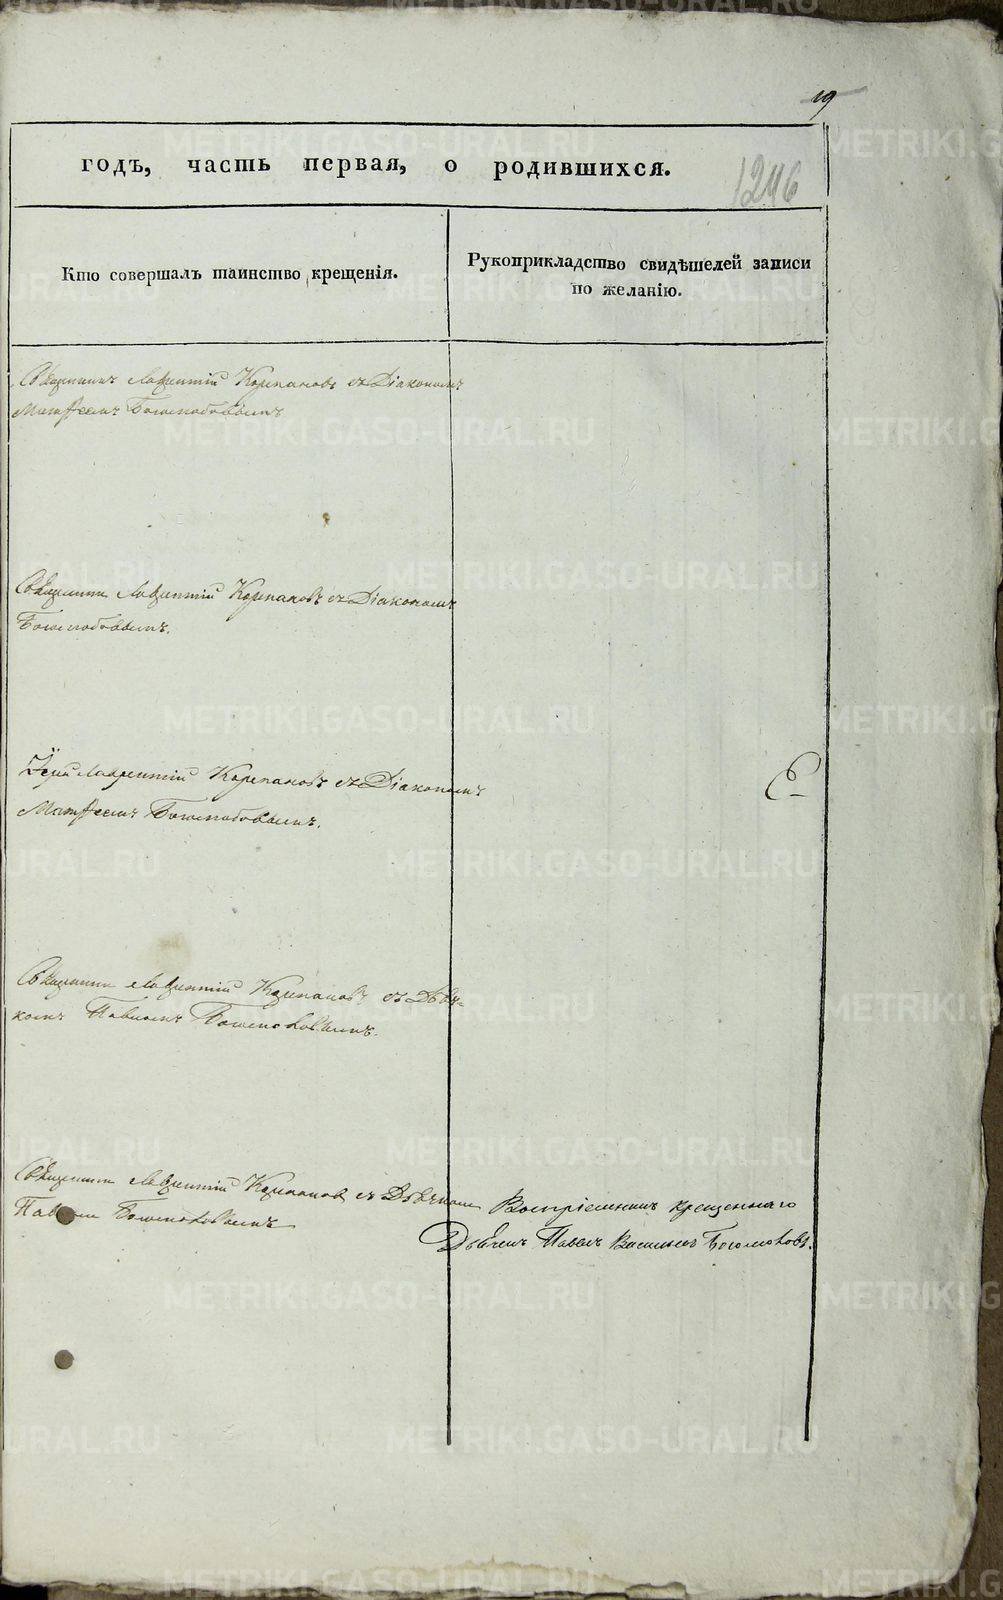 19
годъ, часть первая, о родившихся.
1246
Кто совершалъ таинство крещенія.
Рукоприкладство свидѣтелей записи
по желанію.
Священникъ Лаврентій Корепановъ съ Діакономъ
Матѳеемъ Боголюбовымъ
Священникъ Лаврентій Корепановъ съ Діакономъ
Боголюбовымъ.
Іерей Лаврентій Корепановъ съ Діакономъ
Матѳеемъ Боголюбовымъ.
Священникъ Лаврентій Корепановъ съ Дьяч=
комъ Павломъ
Священникъ Лаврентій Корепановъ съ Дьячкомъ
Павломъ
Воспріемникъ крещеннаго
Дьячекъ Павелъ Васильевъ
METRIKI.GASO-URAL.RU